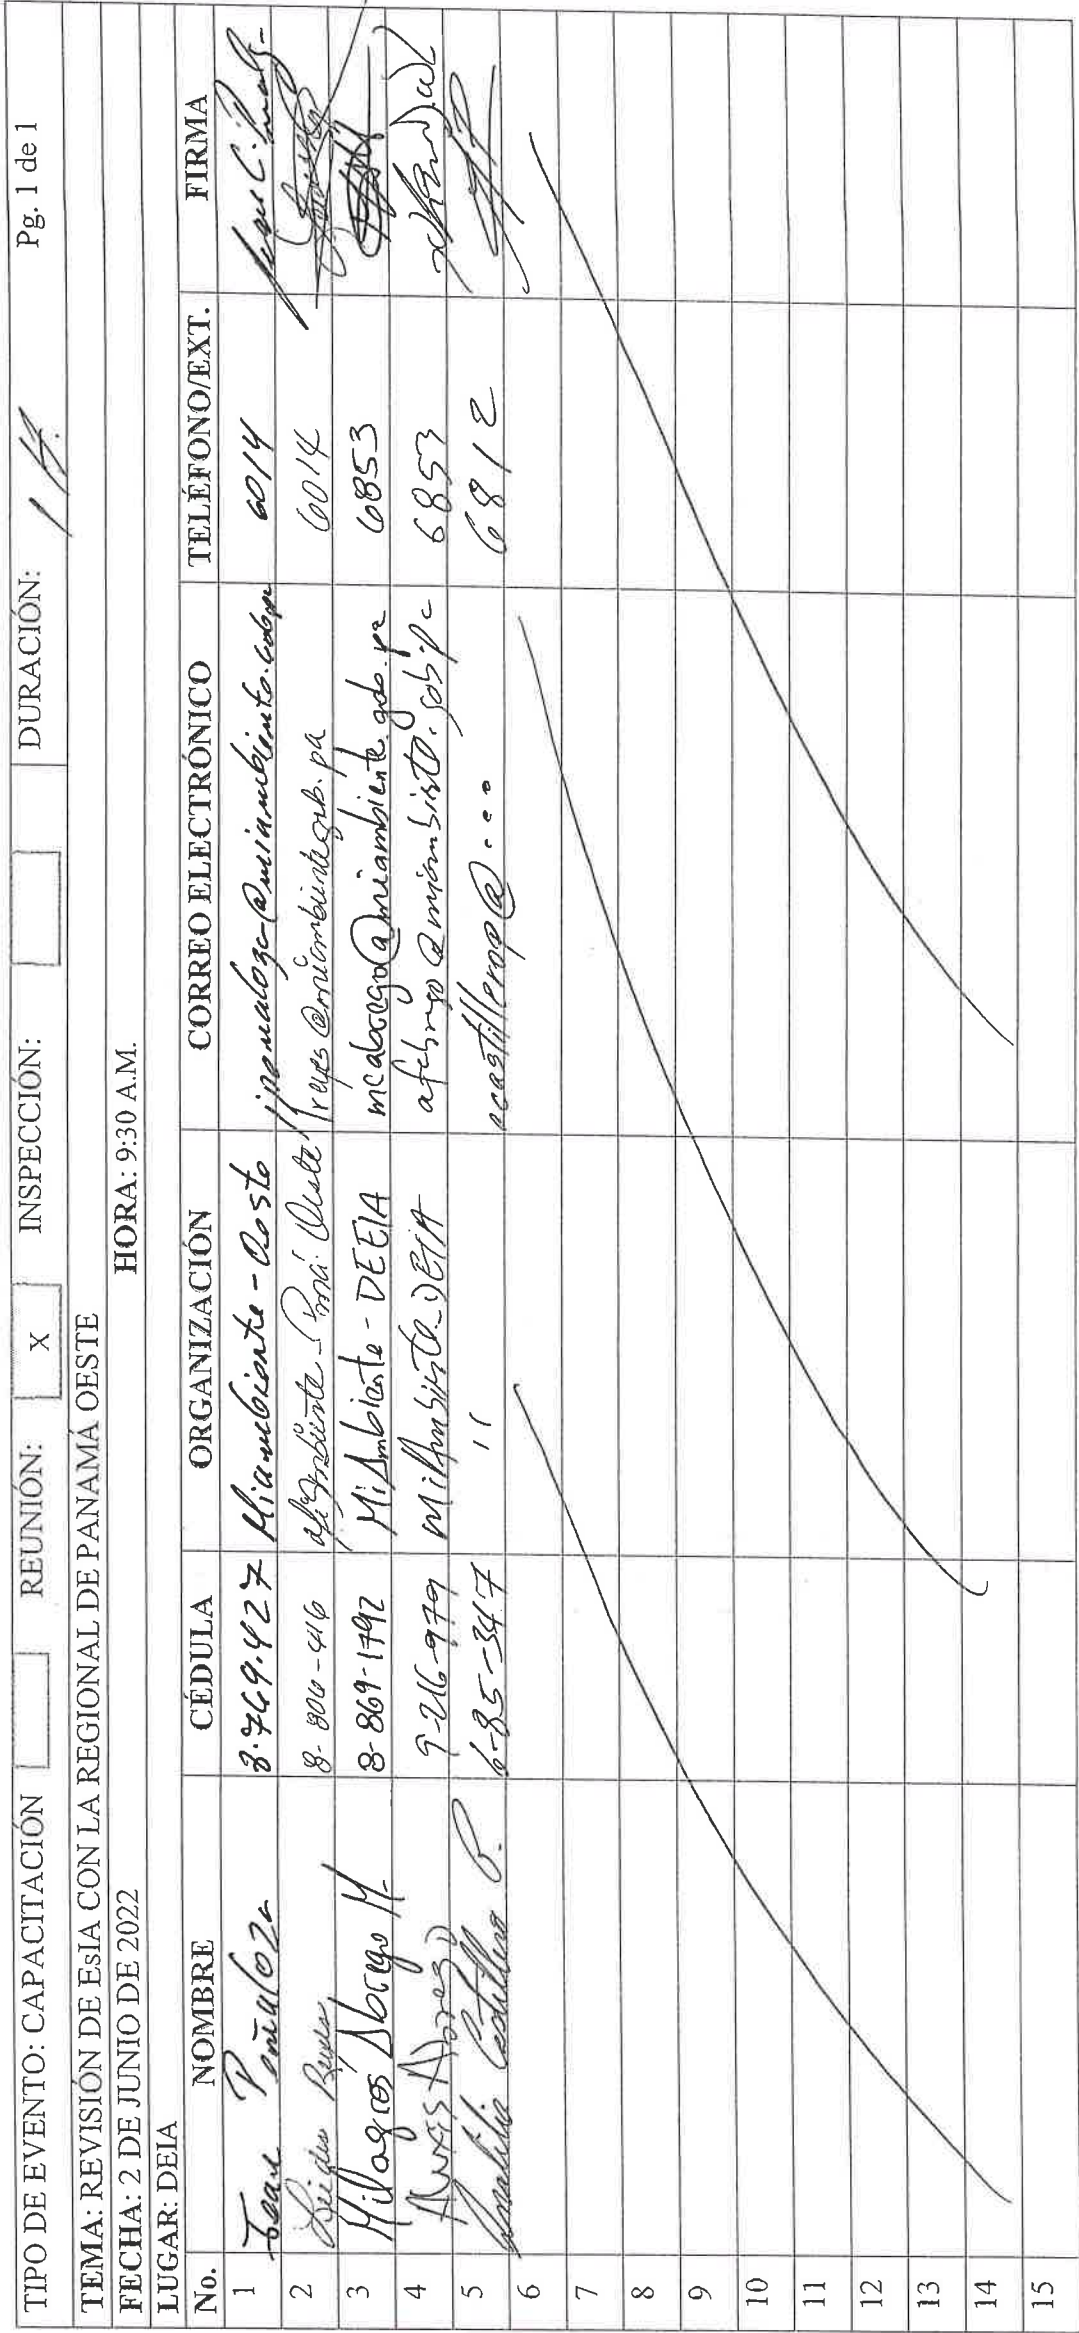 TIPO DE EVENTO: CAPACITACIÓN REUNIÓN: X INSPECCIÓN: DURACIÓN: Pg. 1 de 1
TEMA: REVISIÓN DE EsIA CON LA REGIONAL DE PANAMÁ OESTE
FECHA: 2 DE JUNIO DE 2022 HORA: 9:30 A.M.
LUGAR: DEIA
No. NOMBRE CÉDULA ORGANIZACIÓN CORREO ELECTRÓNICO TELÉFONO/EXT. FIRMA
1 Jean Peñaloza 8-769-427 Miambiente - Oeste 6014
2 Reyes 8-806-416 Miambiente Pmá. Oeste 6014
3 Milagros Abrego M. 8-869-1792 MiAmbiente - DEEIA mcabrego@miambiente.gob.pa 6853
4 Abrego 9-216-979 MiAmbiente-DEIA 6853
5 Analilia Castillero P. 6-85-347 '' acastillerop@... 6812
6
7
8
9
10
11
12
13
14
15